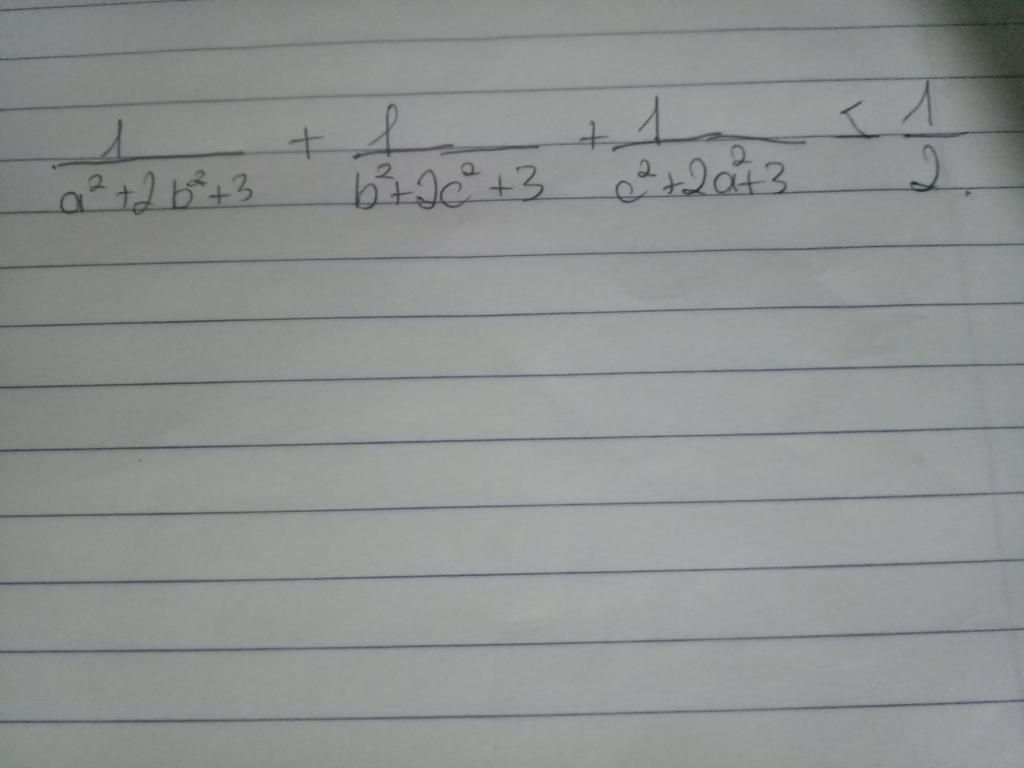 1/(a²+2b²+3) + 1/(b²+2c²+3) + 1/(c²+2a²+3) ≤ 1/2.